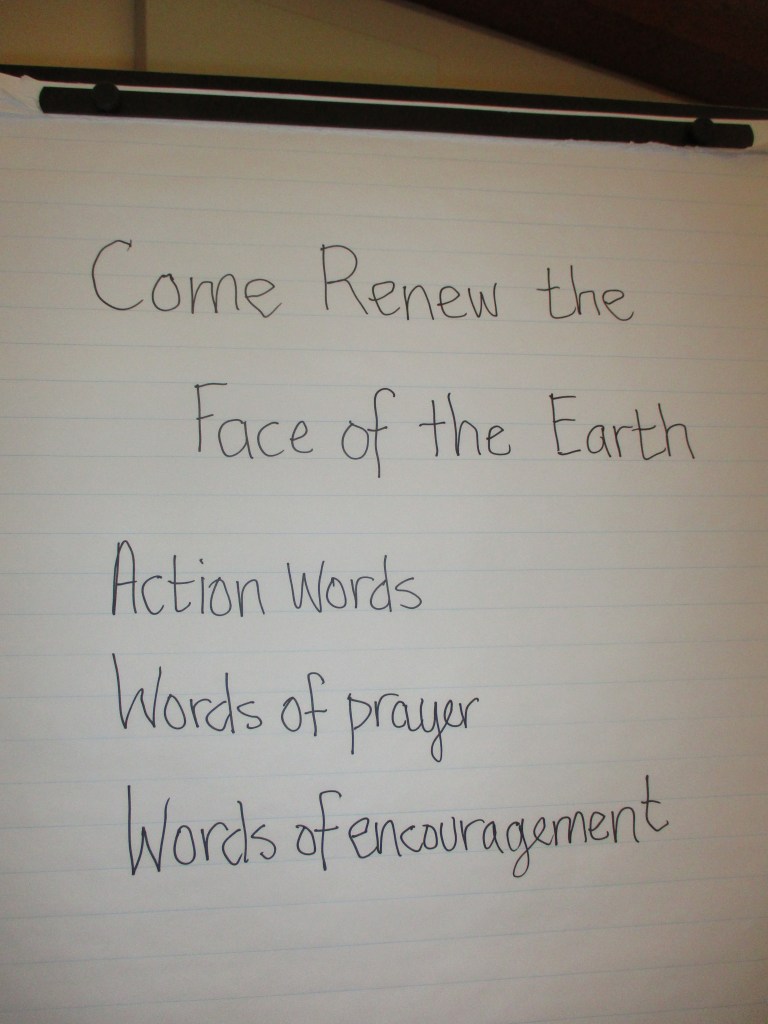 Come Renew the
Face of the Earth
Action Words
Words of prayer
Words of encouragement